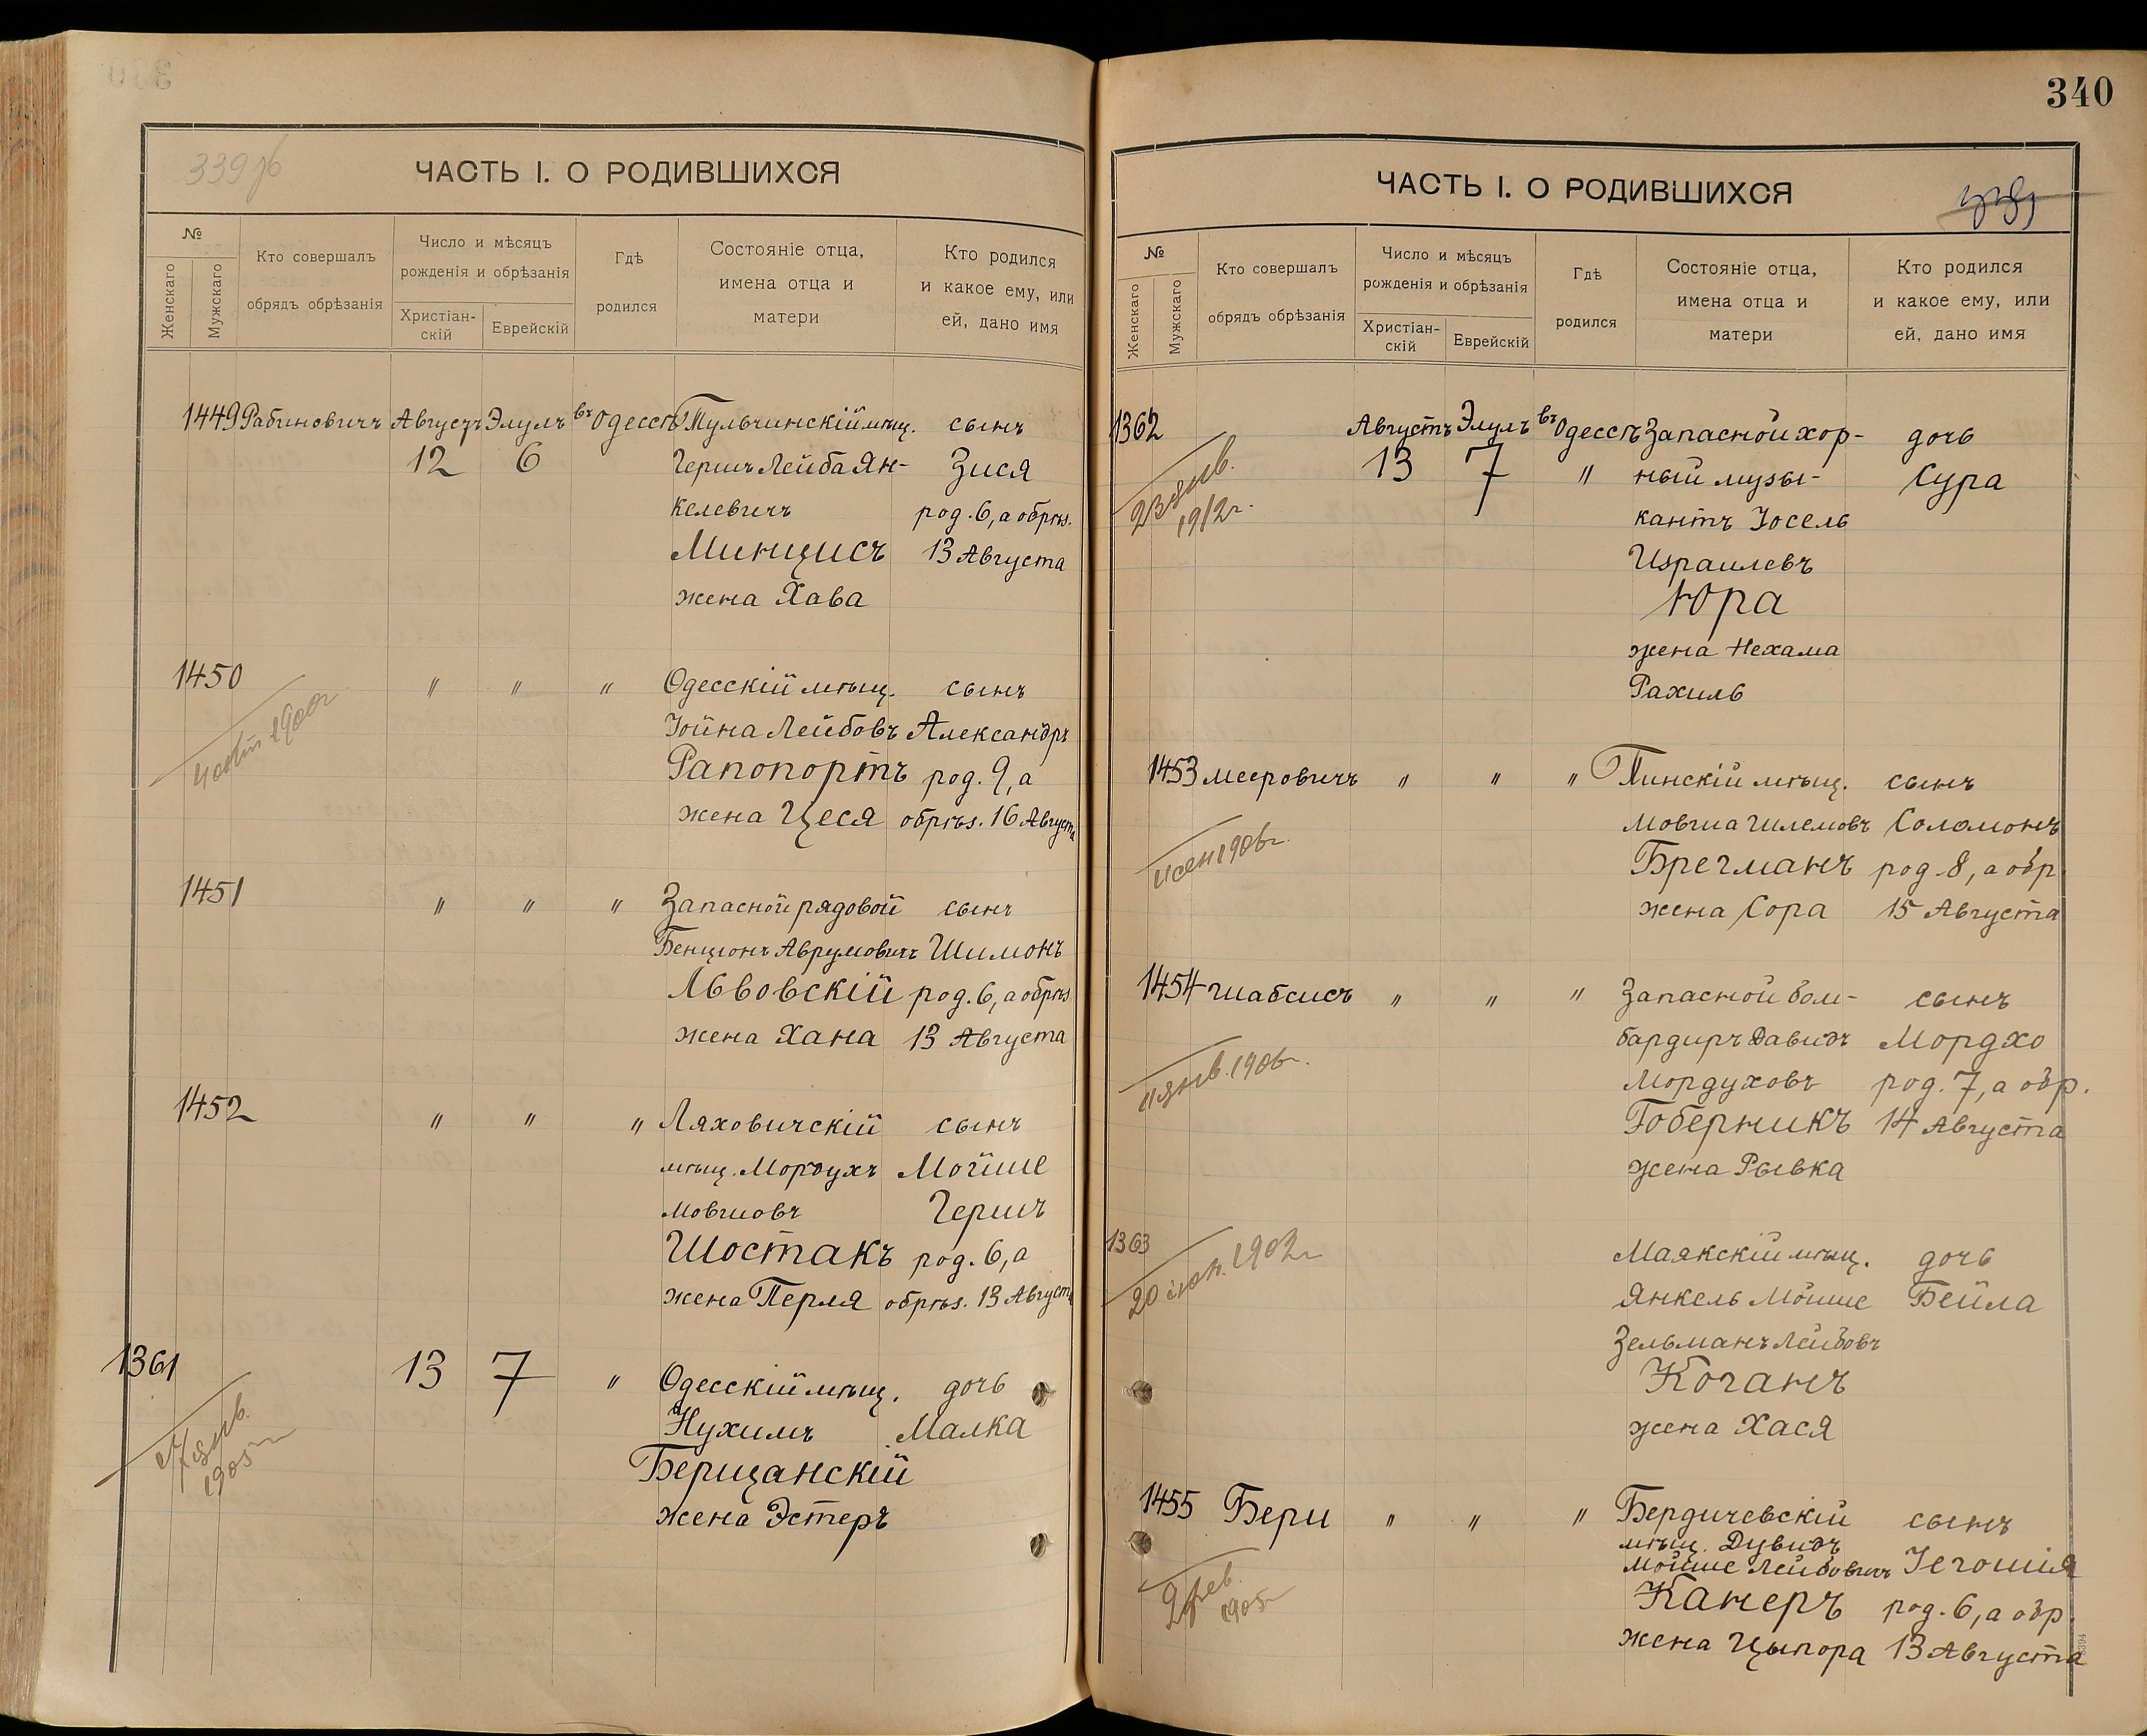 339 об
ЧАСТЬ I. О РОДИВШИХСЯ
№
Женскаго
Мужскаго
Кто совершалъ
обрядъ обрѣзанія
Число и мѣсяцъ
рожденія и обрѣзанія
Христіан-
скій
Еврейскій
Гдѣ
родился
Состояніе отца,
имена отца и
матери
Кто родился
и какое ему, или
ей, дано имя
1449 Рабиновичъ Августъ Элулъ въ Одессѣ Тульчинскій мѣщ. сынъ
12 6 Гершъ Лейба Ян- Зися
келевичъ род. 6, а обрѣз.
Минцисъ 13 Августа
жена Хава
1450 " " " Одесскій мѣщ. сынъ
Іойна Лейбовъ Александръ
1900г
Рапопортъ род. 9, а
жена Цеся обрѣз. 16 Августа
1451 " " " Запасной рядовой сынъ
Бенціонъ Аврумовичъ Шимонъ
Львовскій род. 6, а обрѣз.
жена Хана 13 Августа
1452 " " " Ляховичскій сынъ
мѣщ. Мордухъ Мойше
Мовшовъ Гершъ
Шостакъ род. 6, а
жена Перля обрѣз. 13 Августа
1361 13 7 " Одесскій мѣщ. дочь
Нухимъ Малка
янв.
1905г
Берщанскій
жена Эстеръ
340
ЧАСТЬ I. О РОДИВШИХСЯ
№
Женскаго
Мужскаго
Кто совершалъ
обрядъ обрѣзанія
Число и мѣсяцъ
рожденія и обрѣзанія
Христіан-
скій
Еврейскій
Гдѣ
родился
Состояніе отца,
имена отца и
матери
Кто родился
и какое ему, или
ей, дано имя
1362 Августъ Элулъ въ Одессѣ Запасной хор- дочь
13 7 " ный музы- Сура
23 янв.
1912г.
кантъ Іосель
Израилевъ
Юра
жена Нехама
Рахиль
1453 Мееровичъ " " " Пинскій мѣщ. сынъ
Мовша Шлемовъ Соломонъ
1906г.
Брегманъ род. 8, а обр.
жена Сора 15 Августа
1454 Шабсисъ " " " Запасной бом- сынъ
бардиръ Давидъ Мордхо
11 янв. 1906г.
Мордуховъ род. 7, а обр.
Гоберникъ 14 Августа
жена Рывка
1363 Маякскій мѣщ. дочь
20 1902г
Янкель Мойше Бейла
Зельманъ Лейбовъ
Коганъ
жена Хася
1455 Бери " " " Бердичевскій сынъ
мѣщ. Дувидъ
Мойше Лейбовичъ Іегошія
2 фев.
1905г
Канеръ род. 6, а обр.
жена Цыпора 13 Августа